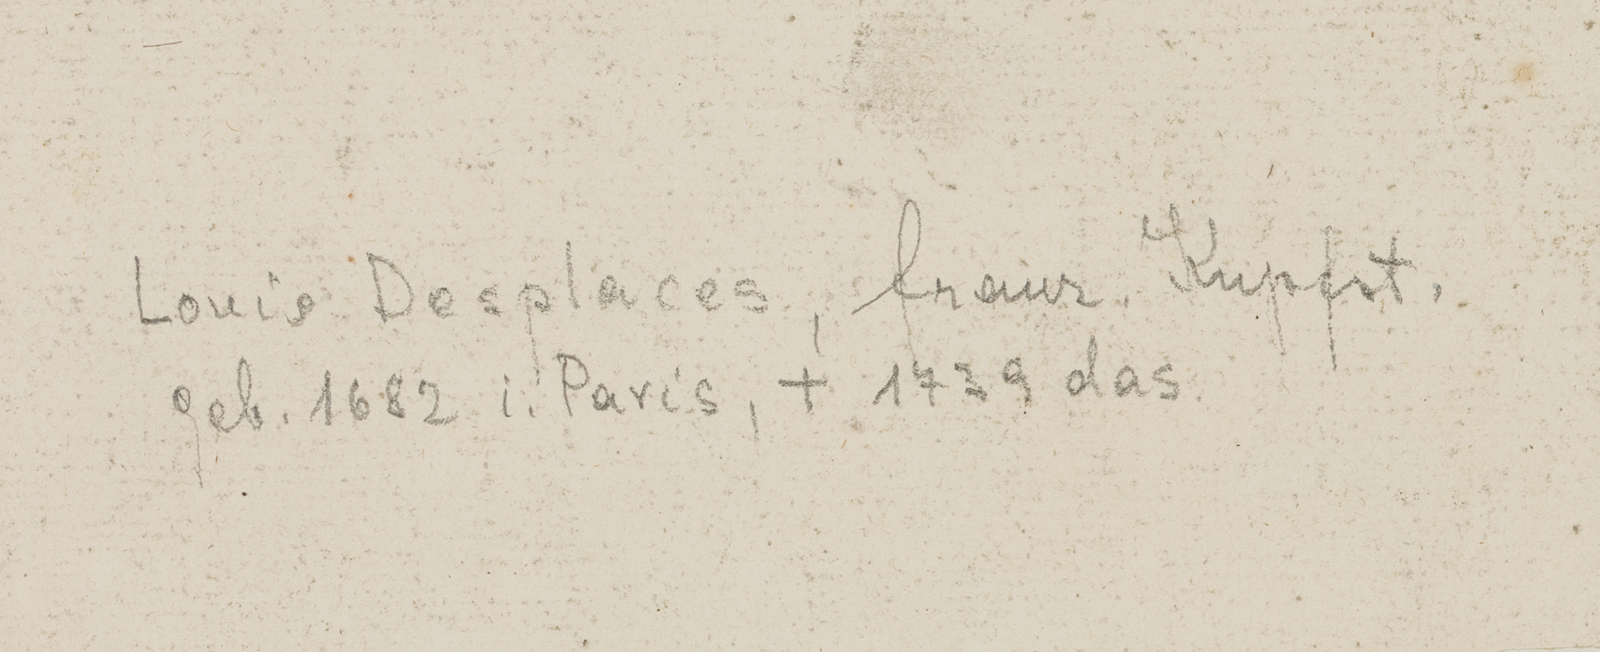 Louis Desplaces, franz. Kupfst.
geb. 1682 i. Paris, + 1739 das.